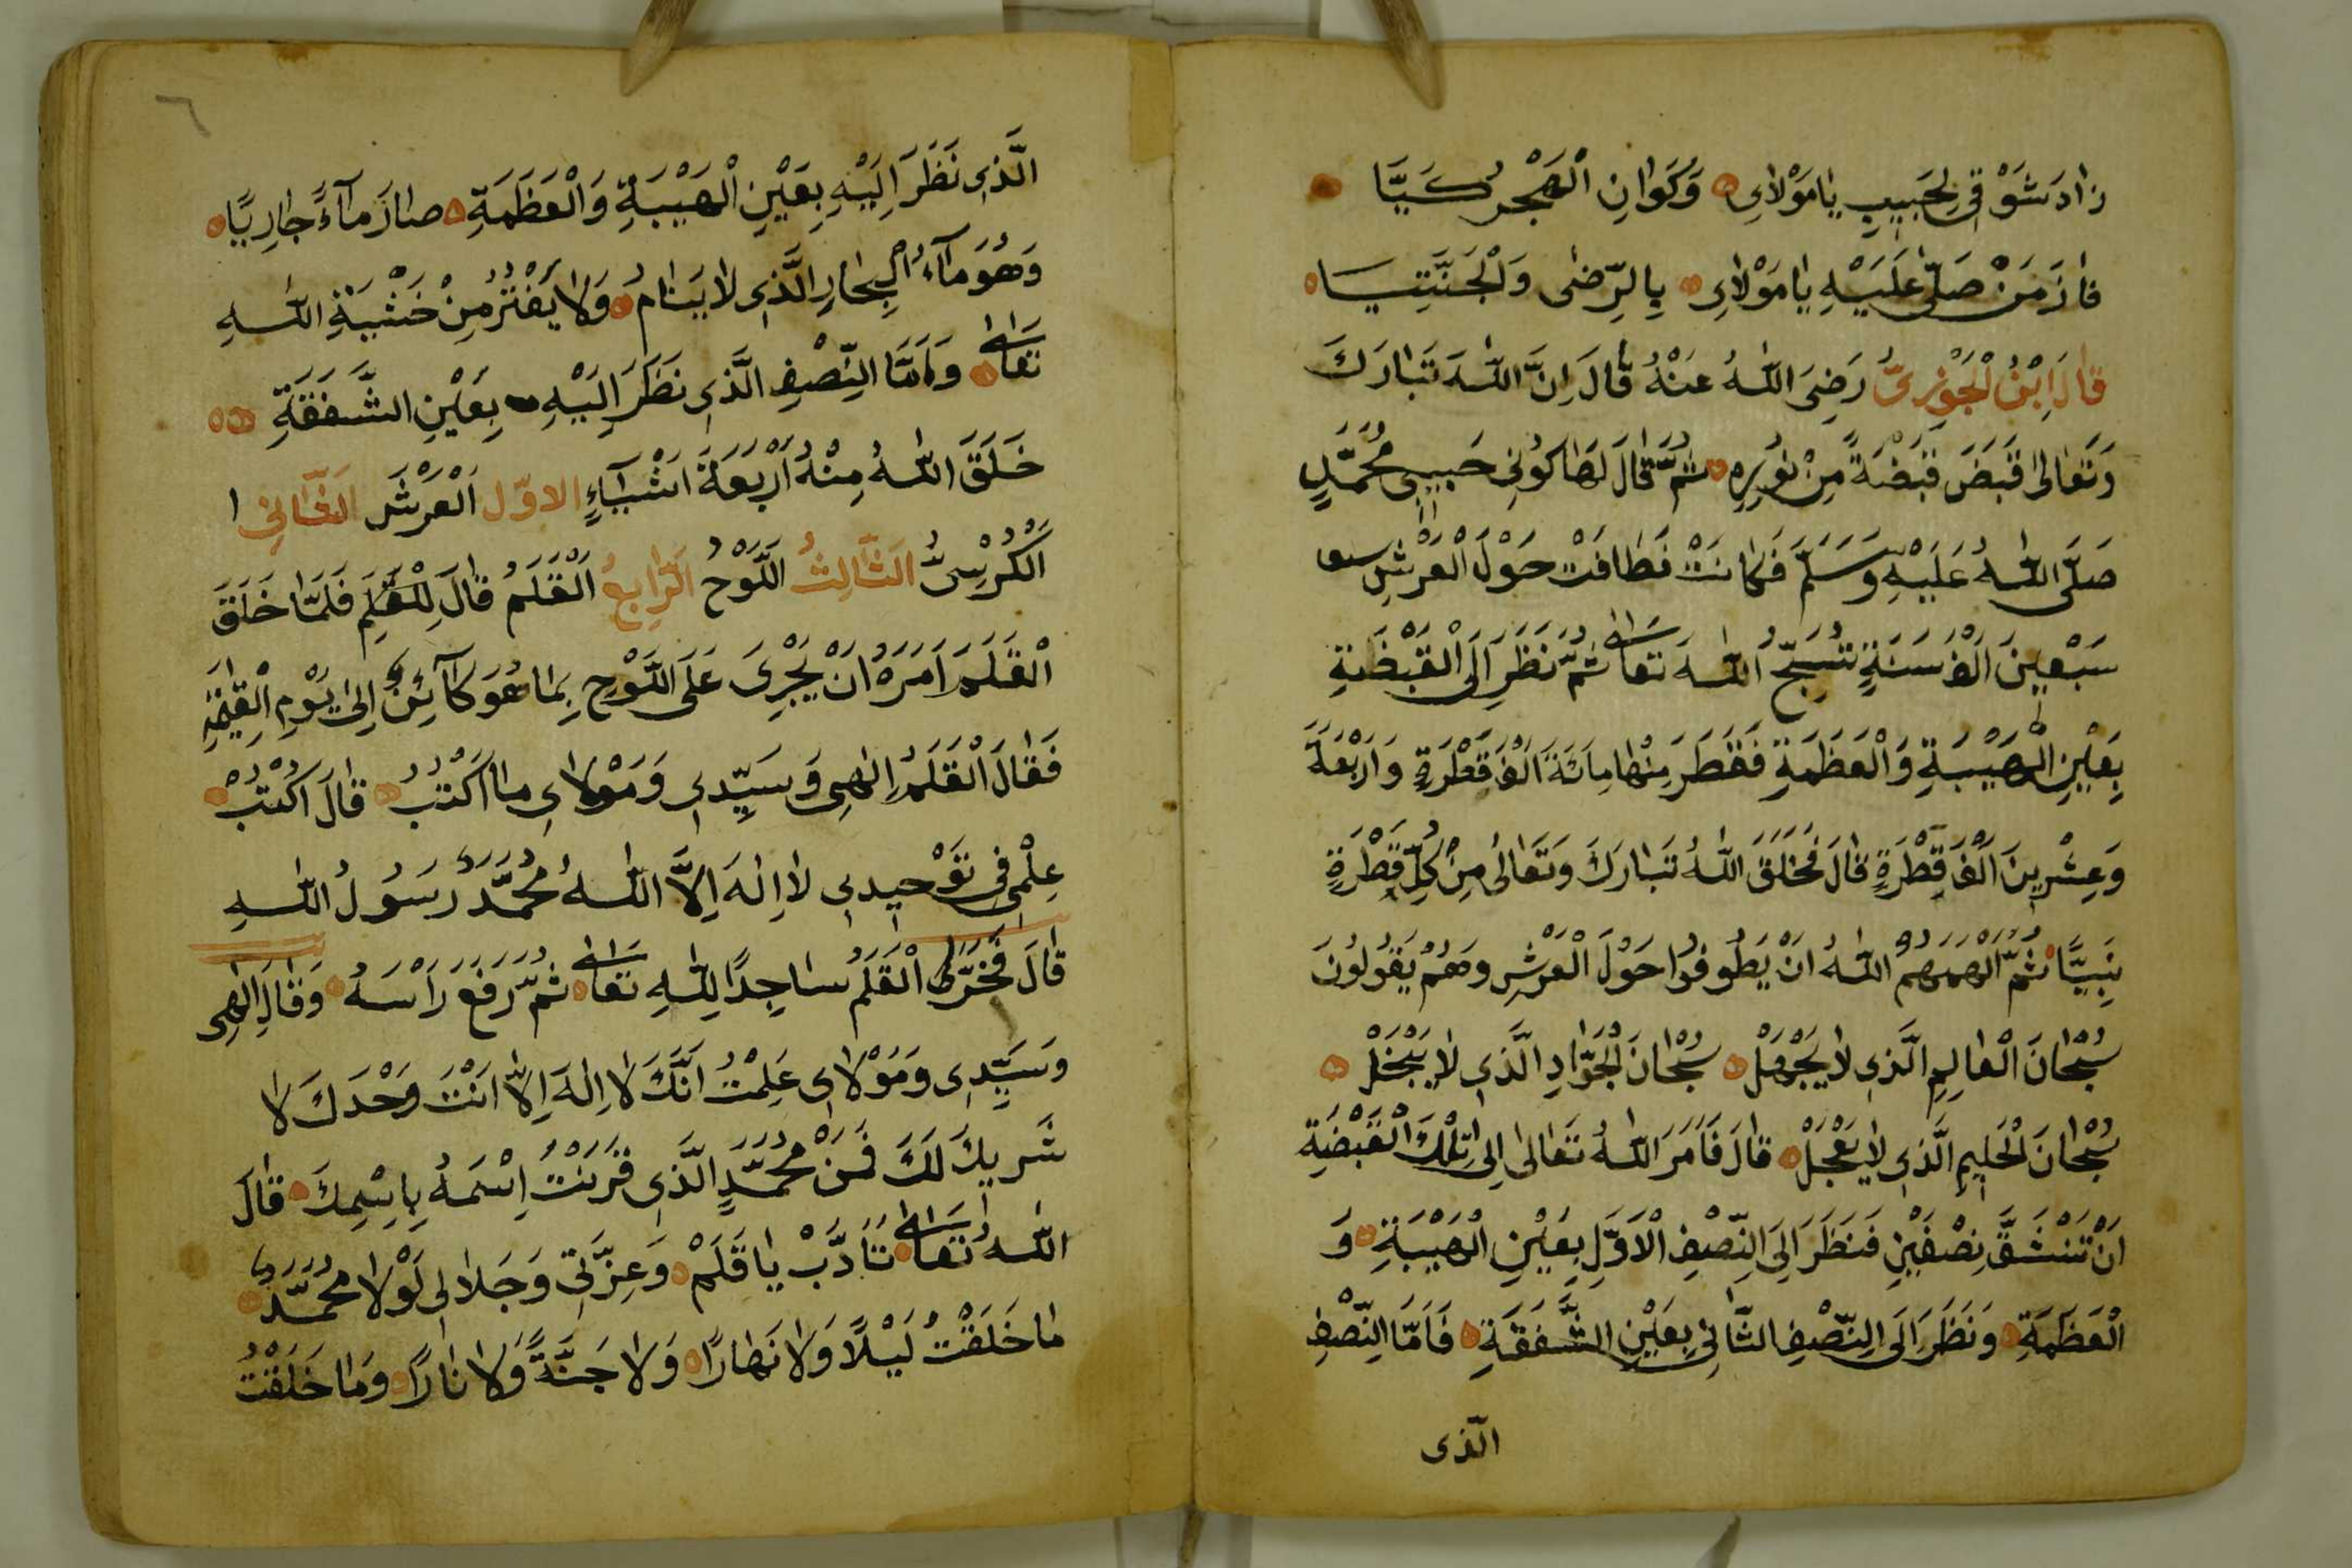 زَادَ شَوْقِي لِحَبِيبِ يَا مَوْلَايِ وَكَوَانِ الْهَجْرُ كَيَّا
فَازَ مَنْ صَلَّى عَلَيْهِ يَا مَوْلَايِ بِالرِّضَى وَلْجَنَّتِيَا
قَالَ ابْنُ لْجَوْزِىُّ رَضِيَ اللَّهُ عَنْهُ قَالَ اِنَّ اللَّهَ تَبَارَكَ
وَتَعَالَى قَبَضَ قَبْضَةً مِنْ نُورِهِ ثُمَّ قَالَ لَهَا كُونِي حَبِيبِى مُحَمَّدٍ
صَلَّى اللَّهُ عَلَيْهِ وَسَلَّمَ فَكَانَتْ فَطَافَتْ حَوْلَ الْعَرْشِ
سَبْعِينَ اَلْفَ سَنَةٍ تُسَبِّحُ اللَّهَ تَعَالَى ثُمَّ نَظَرَ اِلَى الْقَبْضَةِ
بِعَيْنِ الْهَيْبَةِ وَالْعَظَمَةِ فَقَطَرَ مِنْهَا مِائَةَ اَلْفَ قَطْرَةٍ وَاَرْبَعَةَ
وَعِشْرِينَ اَلْفَ قَطْرَةٍ قَالَ فَخَلَقَ اللَّهُ تَبَارَكَ وَتَعَالَى مِنْ كُلِّ قَطْرَةٍ
نَبِيًّا ثُمَّ اَلْهَمَهُمُ اللَّهُ اَنْ يَطُوفُوا حَوْلَ الْعَرْشِ وَهُمْ يَقُولُونَ
سُبْحَانَ الْعَالِمِ الَّذِى لَا يَجْهَلْ سُبْحَانَ لْجَوَّادِ الَّذِى لَا يَبْخَلْ
سُبْحَانَ لْحَلِيمِ الَّذِى لَا يَعْجَلْ قَالَ فَاَمَرَ اللَّهُ تَعَالَى اِلَى تِلْكَ الْقَبْضَةِ
اَنْ تَنْشَقَّ نِصْفَيْنِ فَنَظَرَ اِلَى النِّصْفِ الْاَوَّلِ بِعَيْنِ الْهَيْبَةِ وَ
الْعَظَمَةِ وَنَظَرَ اِلَى النِّصْفِ الثَّانِي بِعَيْنِ الشَّفَقَةِ فَاَمَّا النِّصْفِ
الَّذى
٦
الَّذِى نَظَرَ اِلَيْهِ بِعَيْنِ الْهَيْبَةِ وَالْعَظَمَةِ صَارَ مَآءً جَارِيًا
وَهُوَ مَآءُ الْبِحَارِ الَّذِى لَا يَنَامُ وَلَا يَفْتُرُ مِنْ خَشْيَةِ اللَّهِ
تَعَالَى وَاَمَّا النِّصْفِ الَّذِى نَظَرَ اِلَيْهِ بِعَيْنِ الشَّفَقَةِ
خَلَقَ اللَّهُ مِنْهُ اَرْبَعَةَ اَشْيَآءٍ الاوّل اَلْعَرْشَ الثَّانِى ا
اَلْكُرْسِىُّ اَلثَّالِثُ اَللَّوْحُ اَلرَّابِعُ اَلْقَلَمُ قَالَ لِلْقَلَمِ فَلَمَّا خَلَقَ
الْقَلَمَ اَمَرَهُ اَنْ يَجْرِىَ عَلَى اللَّوْحِ بِمَا هُوَ كَآئِنٌ اِلَى يَوْمِ الْقِيَمَةِ
فَقَالَ الْقَلَمُ اِلٰهِى وَسَيِّدِى وَمَوْلَاىِ مَا اَكْتُبُ قَالَ اكْتُبْ
عِلْمِى فِى تَوْحِيدِى لَا اِلٰهَ اِلَّا اللَّهُ مُحَمَّدٌ رَسُولُ اللَّهِ
قَالَ فَخَرَّ الْقَلَمُ سَاجِدًا لِلَّهِ تَعَالَى ثُمَّ رَفَعَ رَاْسَهُ وَقَالَ اِلٰهِى
وَسَيِّدِى وَمَوْلَاى عَلِمْتُ اَنَّكَ لَا اِلٰهَ اِلَّا اَنْتَ وَحْدَكَ لَا
شَرِيكَ لَكَ فَمَنْ مُحَمَّدٍ الَّذِى قَرَنْتُ اِسْمَهُ بِاسْمِكَ قَالَ
اللَّهُ تَعَالَى تَاَدَّبْ يَا قَلَمْ وَعِزَّتِى وَجَلَالِى لَوْلَا مُحَمَّدٌ
مَا خَلَقْتُ لَيْلًا وَلَا نَهَارًا وَلَا جَنَّةً وَلَا نَارًا وَمَا خَلَقْتُ